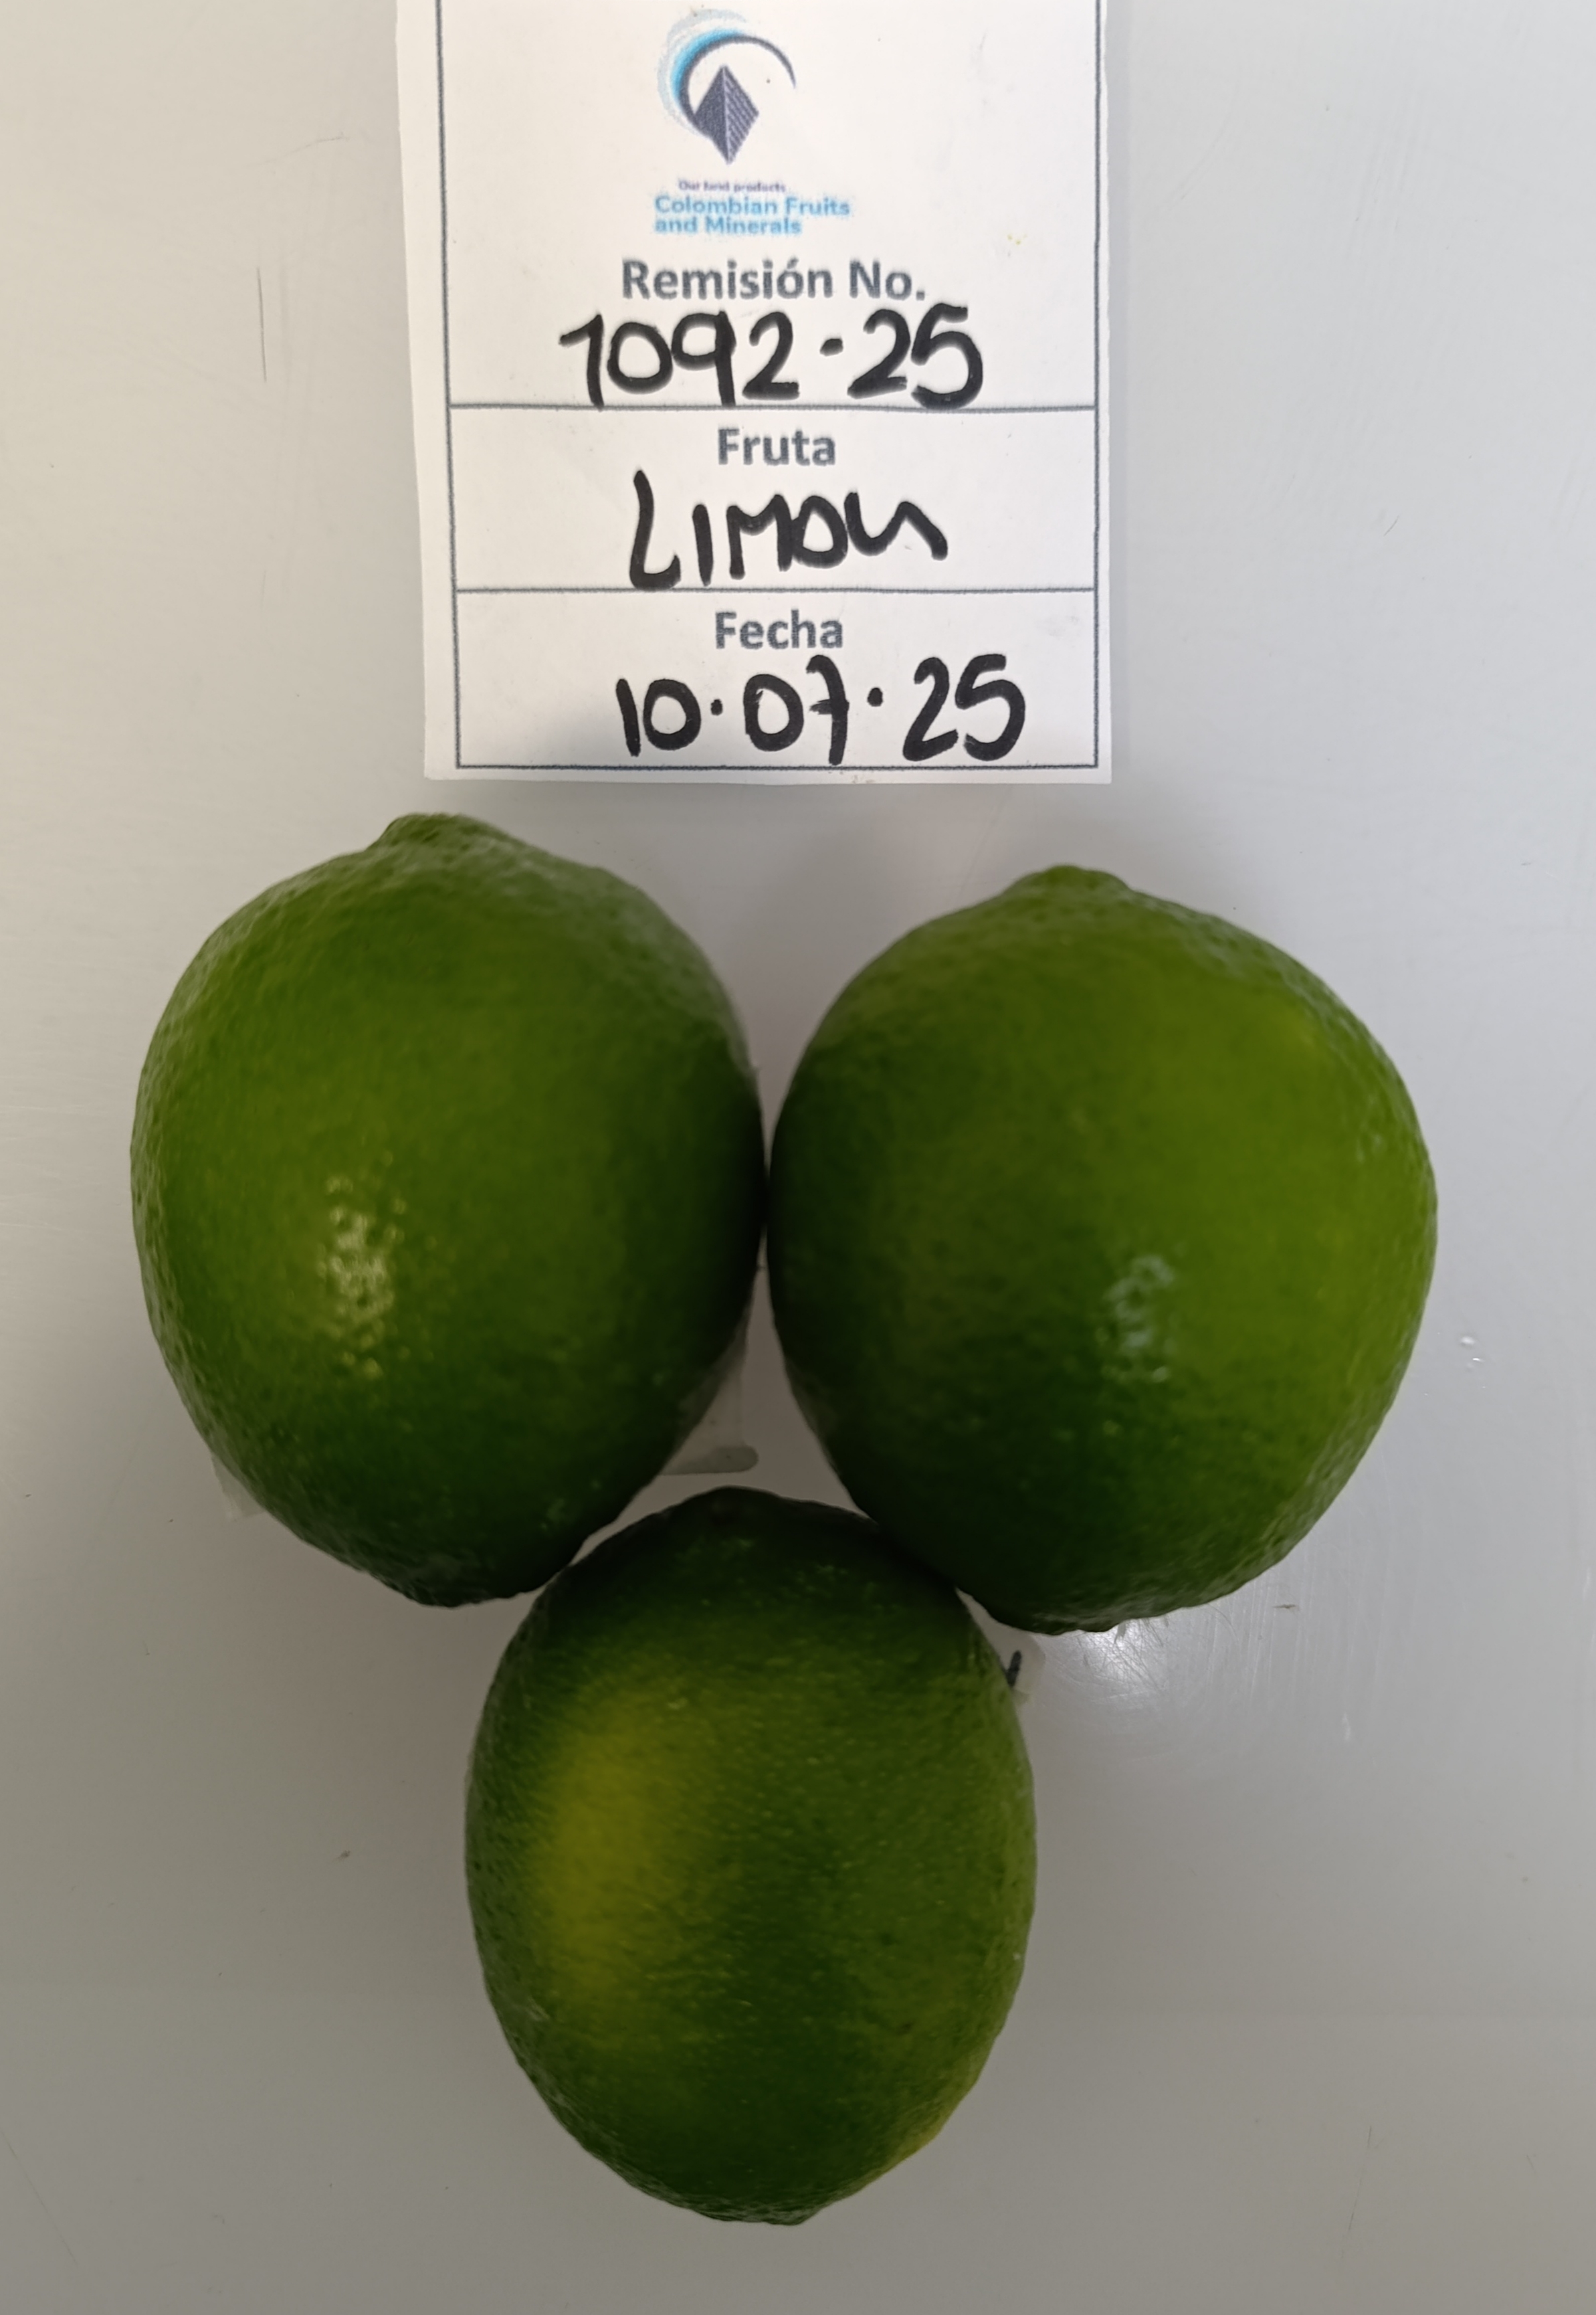 Our land products
Colombian Fruits
and Minerals
Remisión No.
1092·25
Fruta
LIMON
Fecha
10·07·25